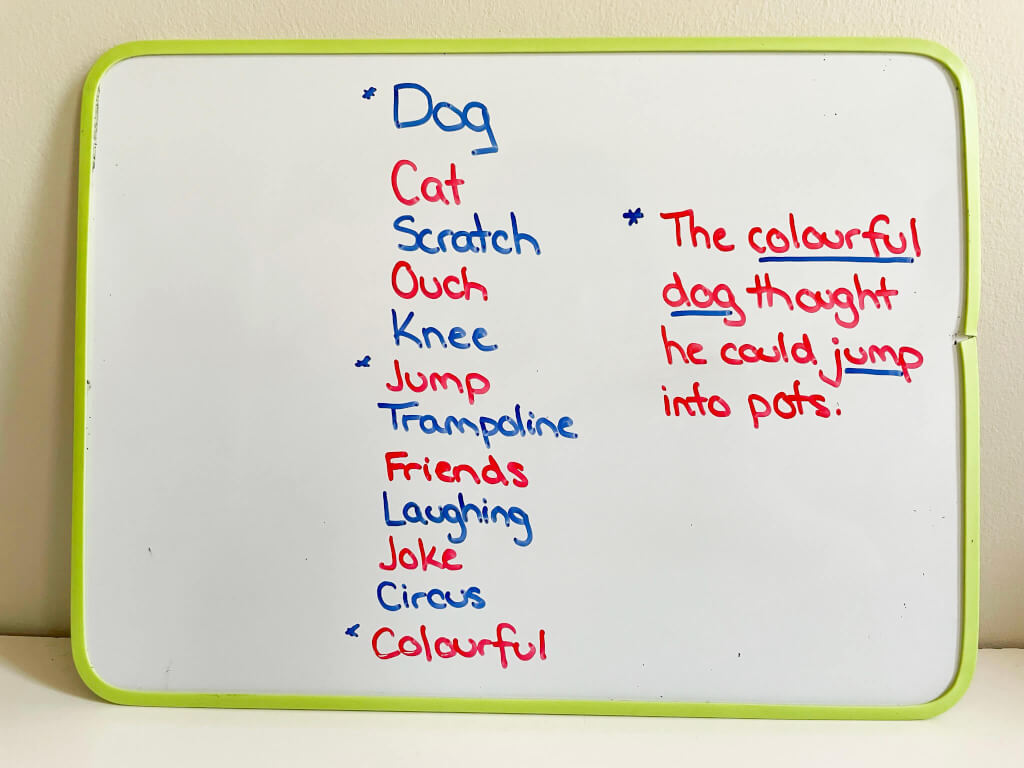 * Dog
Cat
Scratch
Ouch
Knee
* Jump
Trampoline
Friends
Laughing
Joke
Circus
* Colourful
* The colourful
dog thought
he could jump
into pots.